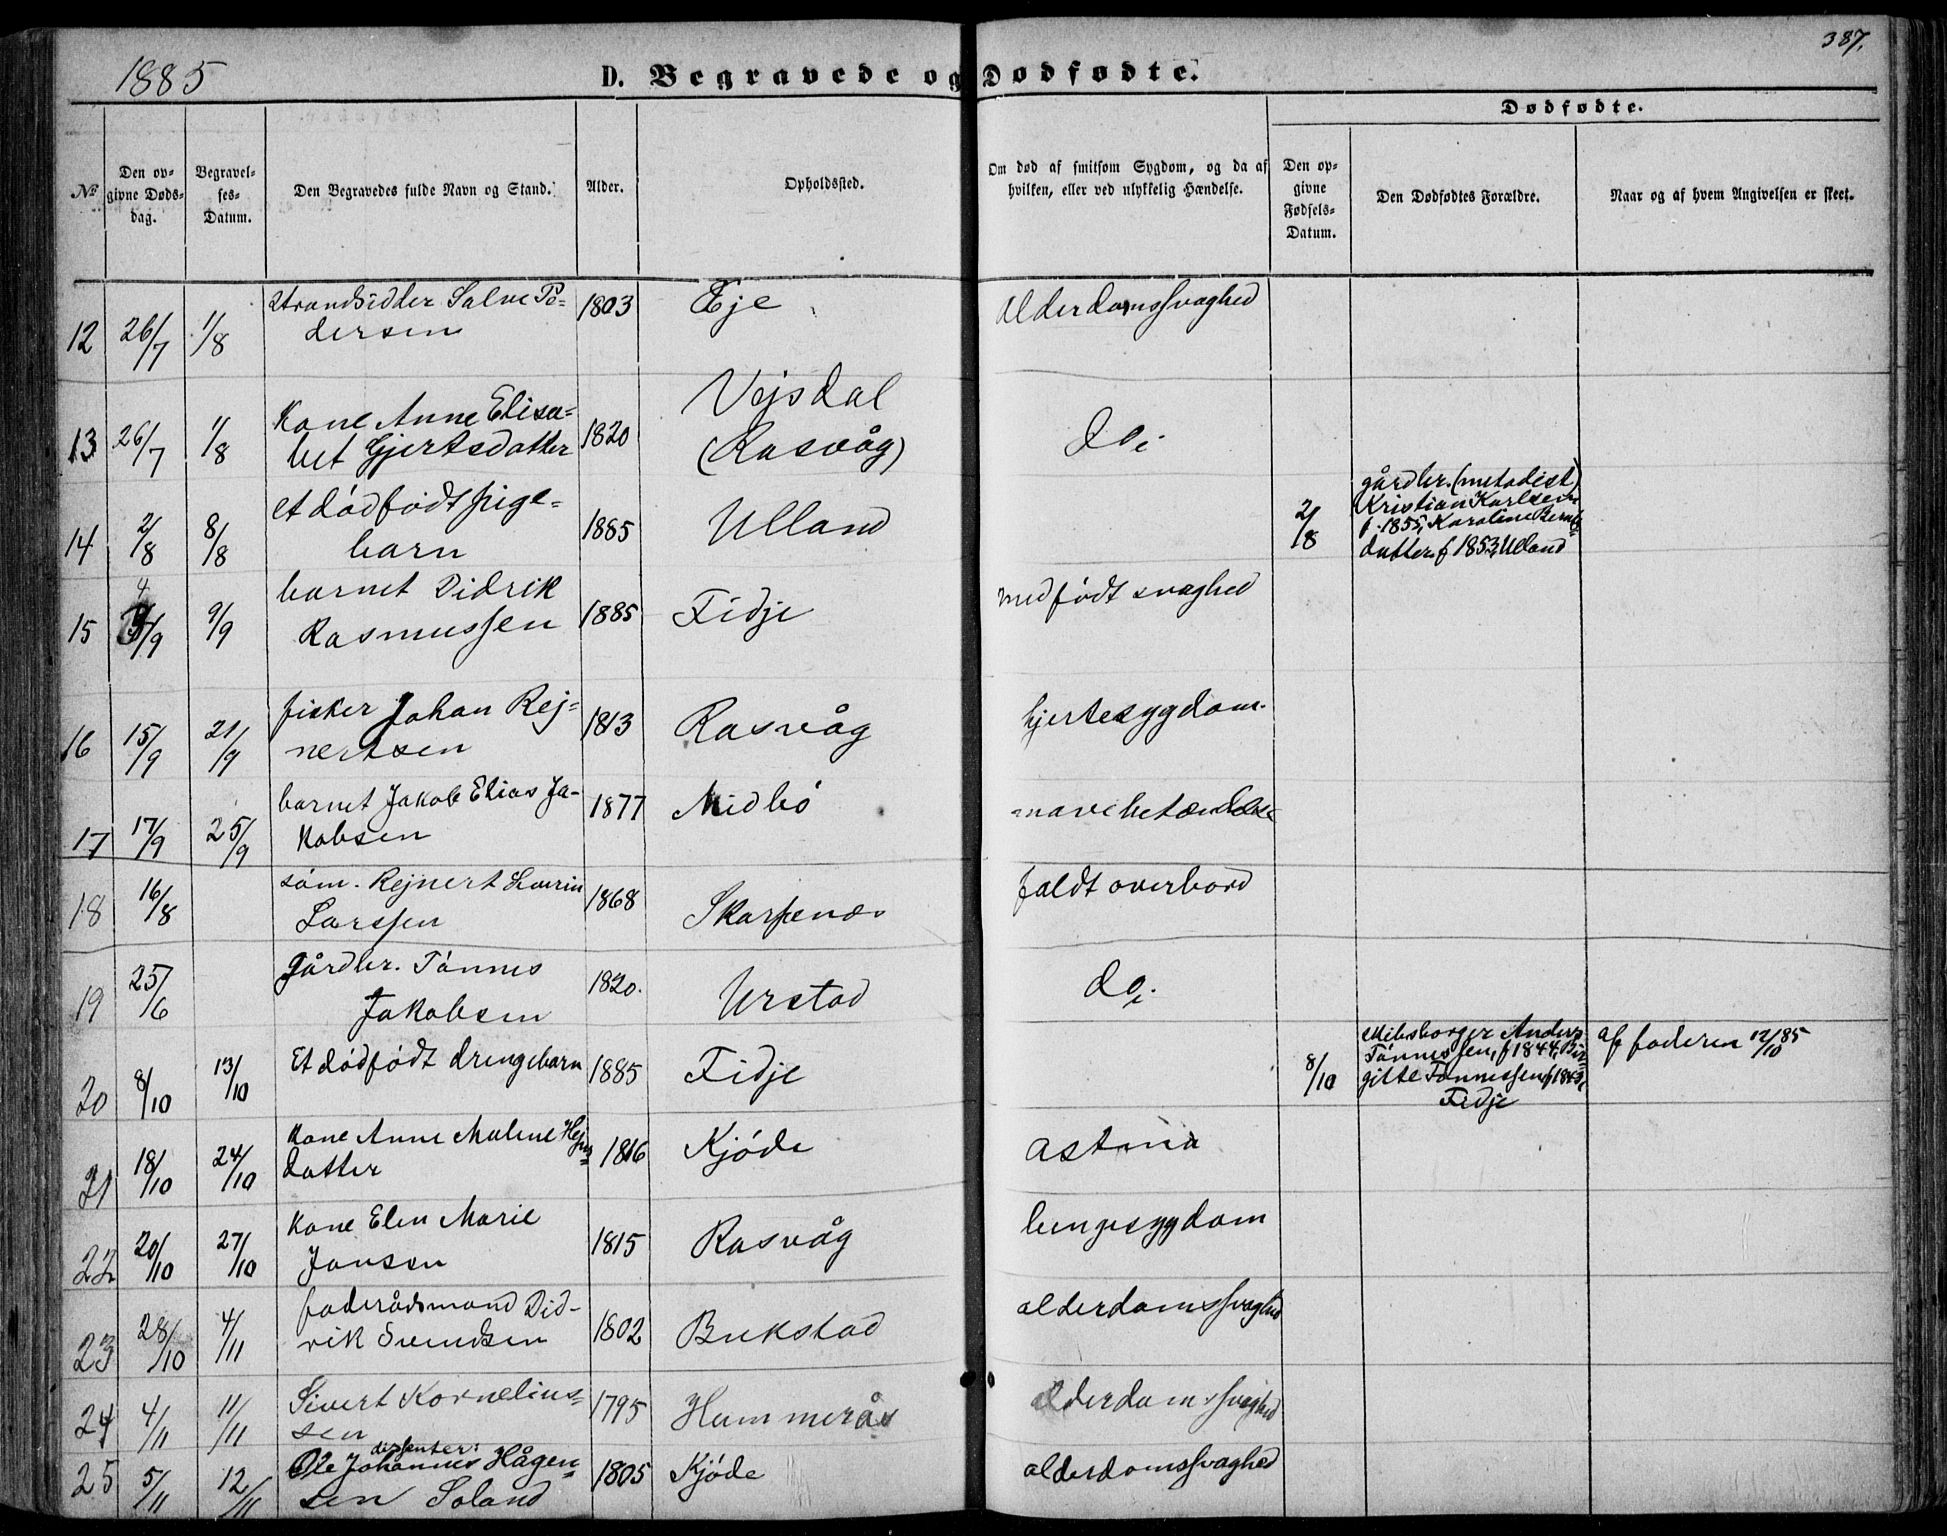 387.
1885
D. Begravede og Dødfødte.
Dødfødte.
No
Den opgivne Dødsdag.
Begravelses-Datum.
Den Begravedes fulde Navn og Stand.
Alder.
Opholdssted.
Om død af smitsom Sygdom, og da af hvilken, eller ved ulykkelig Hændelse.
Den opgivne Fødsels-Datum.
Den Dødfødtes Forældre.
Naar og af hvem Angivelsen er skeet.
12 26/7 1/8 strandsidder Salve Pe- 1803 Eje alderdomssvaghed
dersen
13 26/7 1/8 Kone Anne Elisa- 1820 Vejsdal do.
bet Gjertsdatter (Rasvåg)
14 2/8 8/8 et dødfødt pige- 1885 Ulland 2/8 gårdbr. (metodist)
barn Kristian Karlsen
f. 1855, Karoline Bernt-
datter f 1853, Ulland
15 4/9 9/9 barnet Didrik 1885 Fidje medfødt svaghed
Rasmussen
16 15/9 21/9 fisker Johan Rej- 1813 Rasvåg hjertesygdom.
nertsen
17 17/9 25/9 barnet Jakob Elias Ja- 1877 Midbø mavebetændelse
kobsen
18 16/8 søm. Rejnert Severin 1868 Skarpenæs faldt overbord
Larssen
19 25/6 gårdbr. Tønnes 1820. Urstad do.
Jakobsen
20 8/10 13/10 Et dødfødt drengebarn 1885 Fidje 8/10 Anders af faderen 12/10 85
Tønnessen, f 1844, Bir-
gitte Tønnessen f 1843,
Fidje
21 18/10 24/10 Kone Anne Malene 1816 Kjøde astma
datter
22 20/10 27/10 Kone Elen Marie 1815 Rasvåg lungesygdom
Jansen
23 28/10 4/11 føderådsmand Did- 1802 Bukstad alderdomssvaghed
rik Svendsen
24 4/11 11/11 Sivert Kornelius- 1795 Hummerås alderdomssvaghed
sen
dissenter:
25 5/11 12/11 Ole Johannes Hågen- 1805 Kjøde alderdomssvaghed
sen Soland